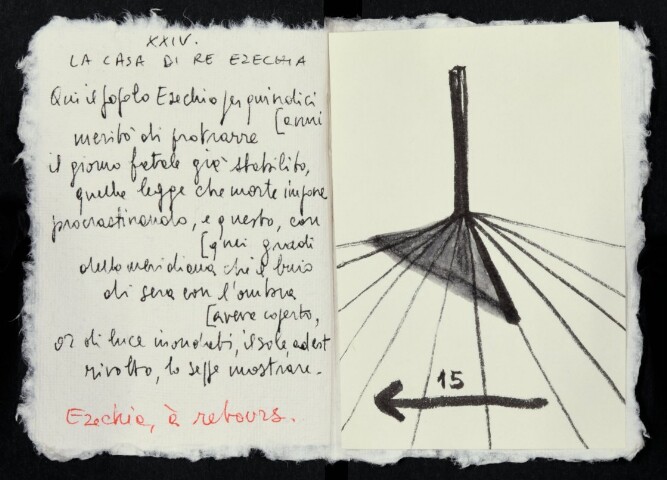 XXIV.
LA CASA DI RE EZECHIA
Qui il Ezechia per quindici
[anni
meritò di protrarre
il giorno fatale già stabilito,
quella legge che morte impone
procrastinando, e questo, con
[quei gradi
della meridiana che il buio
di sera con l'ombra
[aveva coperto,
or di luce inondati, il sole, ad est
rivolto, lo seppe mostrare.
Ezechia, à rebours.
15